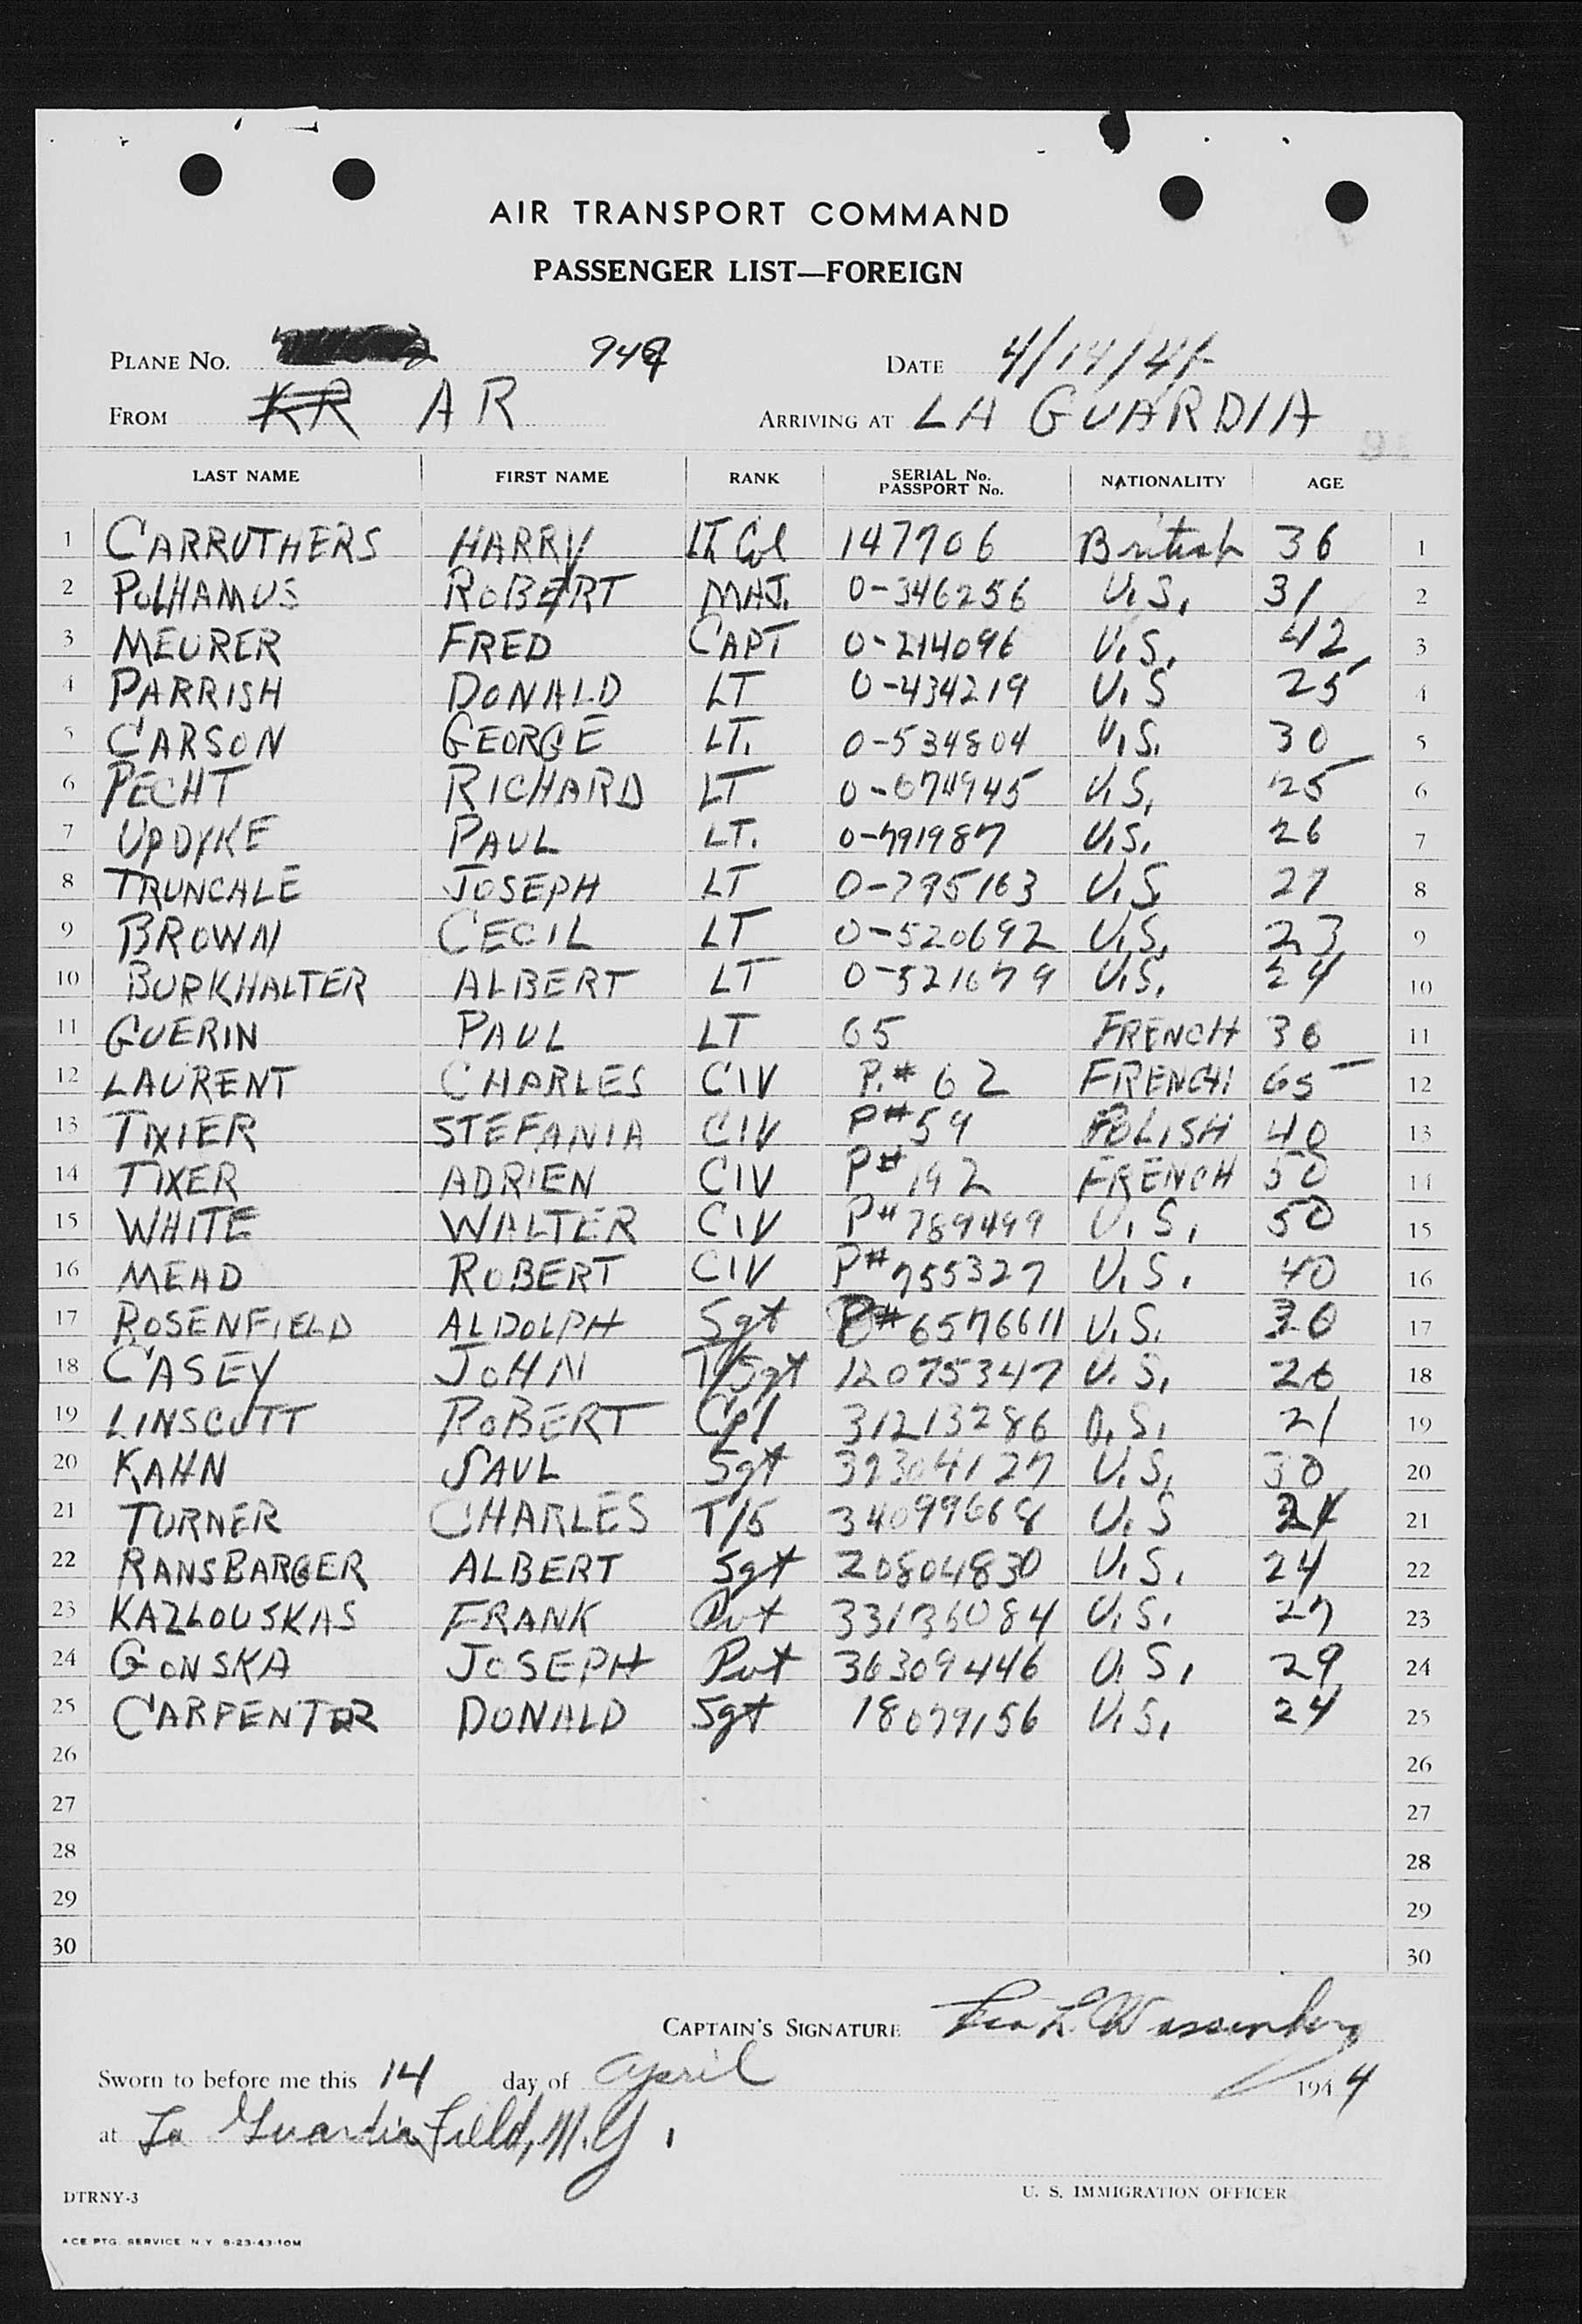 AIR TRANSPORT COMMAND
PASSENGER LIST—FOREIGN
PLANE No. 949 DATE 4/14/44
FROM KR AR ARRIVING AT LA GUARDIA
LAST NAME FIRST NAME RANK SERIAL No. PASSPORT No. NATIONALITY AGE
1 CARRUTHERS HARRY Lt Col 147706 British 36 1
2 POLHAMUS ROBERT MAJ. 0-346256 U.S. 31 2
3 MEURER FRED CAPT 0-214096 U.S. 42 3
4 PARRISH DONALD LT 0-434219 U.S 25 4
5 CARSON GEORGE LT. 0-534804 U.S. 30 5
6 PECHT RICHARD LT 0-674945 U.S. 25 6
7 UPDYKE PAUL LT. 0-791987 U.S. 26 7
8 TRUNCALE JOSEPH LT 0-795163 U.S 27 8
9 BROWN CECIL LT 0-520692 U.S. 23 9
10 BURKHALTER ALBERT LT 0-521679 U.S. 24 10
11 GUERIN PAUL LT 65 FRENCH 36 11
12 LAURENT CHARLES CIV P.# 62 FRENCH 65 12
13 TIXIER STEFANIA CIV P#59 POLISH 40 13
14 TIXER ADRIEN CIV P#192 FRENCH 50 14
15 WHITE WALTER CIV P#789499 U.S. 50 15
16 MEAD ROBERT CIV P#755327 U.S. 40 16
17 ROSENFIELD ALDOLPH Sgt P#6576611 U.S. 30 17
18 CASEY JOHN T/Sgt 12075347 U.S. 26 18
19 LINSCOTT ROBERT Cpl 31213286 U.S. 21 19
20 KAHN SAUL Sgt 39304127 U.S. 30 20
21 TURNER CHARLES T/5 34099668 U.S 24 21
22 RANSBARGER ALBERT Sgt 20804830 U.S. 24 22
23 KAZLOUSKAS FRANK Pvt 33136084 U.S. 27 23
24 GONSKA JOSEPH Pvt 36309446 U.S. 29 24
25 CARPENTER DONALD Sgt 18079156 U.S. 24 25
26 26
27 27
28 28
29 29
30 30
CAPTAIN'S SIGNATURE L. Wassenberg
Sworn to before me this 14 day of April 1944
at La Guardia Field, N.Y.
U. S. IMMIGRATION OFFICER
DTRNY-3
ACE PTG. SERVICE N.Y. 8-23-43-10M